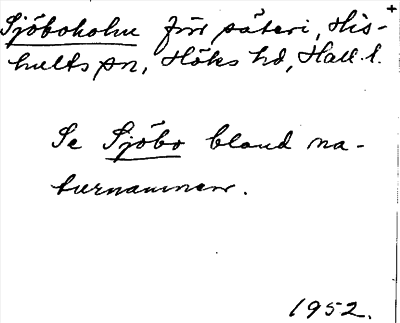 Sjöboholm för säteri, His-
hults sn, Höks hd, Hall. l.
Se Sjöbo bland na-
turnamnen.
1952.